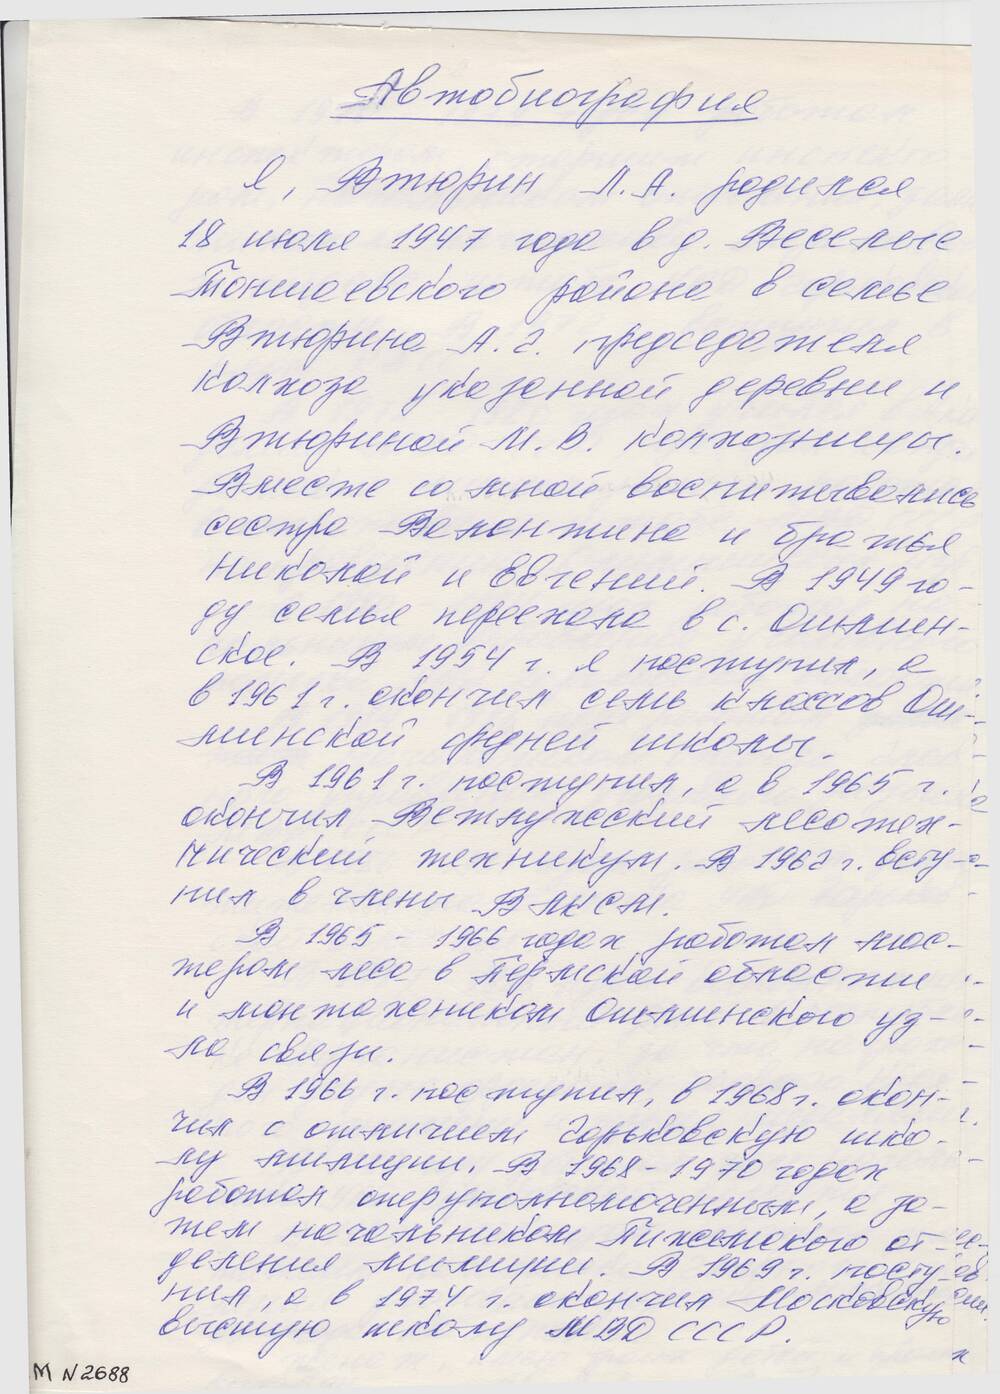 Автобиография
Я, Втюрин Л.А. родился
18 июля 1947 года в д. Веселые
Тоншаевского района в семье
Втюрина А.Г. председателя
колхоза указанной деревни и
Втюриной М.В. колхозницы.
Вместе со мной воспитывались
сестра Валентина и братья
Николай и Евгений. В 1949 го-
ду семья переехала в с. Ошмин-
ское. В 1954 г. я поступил, а
в 1961 г. окончил семь классов Ош-
минской средней школы.
В 1961 г. поступил, а в 1965 г.
окончил Ветлужский лесотех-
нический техникум. В 1962 г. всту-
пил в члены ВЛКСМ.
В 1965 - 1966 годах работал мас-
тером леса в Пермской области
и монтажником Ошминского уз-
ла связи.
В 1966 г. поступил, в 1968 г. окон-
чил с отличием Горьковскую шко-
лу милиции. В 1968-1970 годах
работал оперуполномоченным, а за-
тем начальником Пижемского от-
деления милиции. В 1969 г. посту-
пил, а в 1974 г. окончил Московскую
высшую школу МВД СССР.
М N 2688